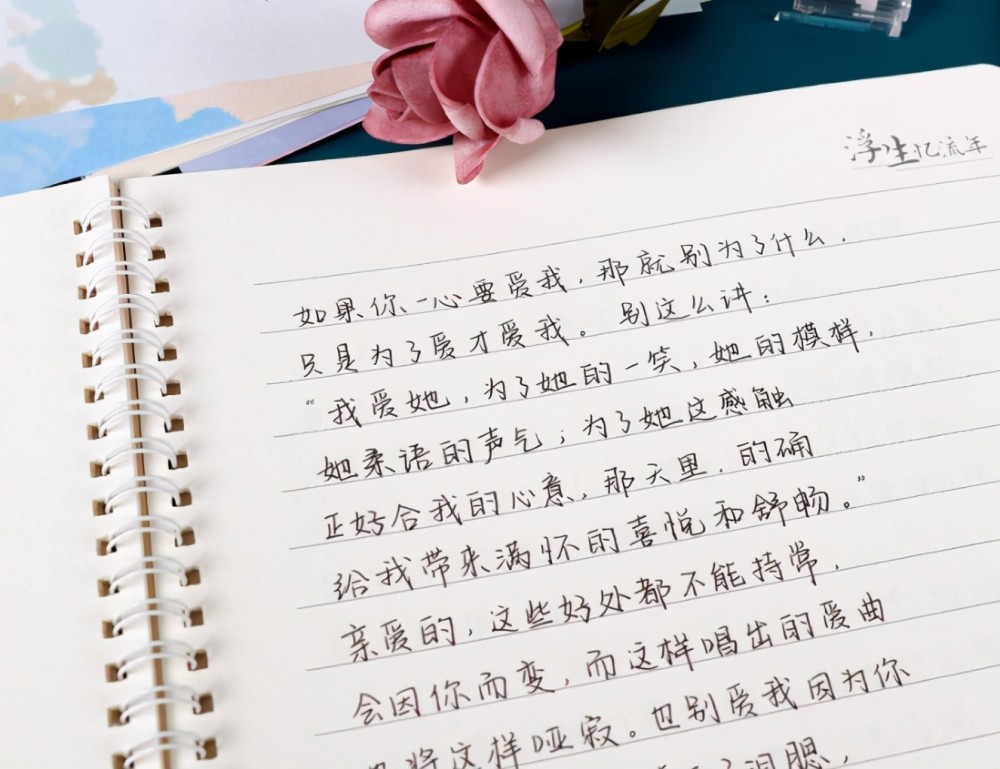 浮生忆流年
如果你一心要爱我，那就别为了什么，
只是为了爱才爱我。别这么讲：
“我爱她，为了她的一笑，她的模样，
她柔语的声气；为了她这感触
正好合我的心意，那天里，的确
给我带来满怀的喜悦和舒畅。”
亲爱的，这些好处都不能持常，
会因你而变，而这样唱出的爱曲
也将这样哑寂。也别爱我因为你
泪腮，